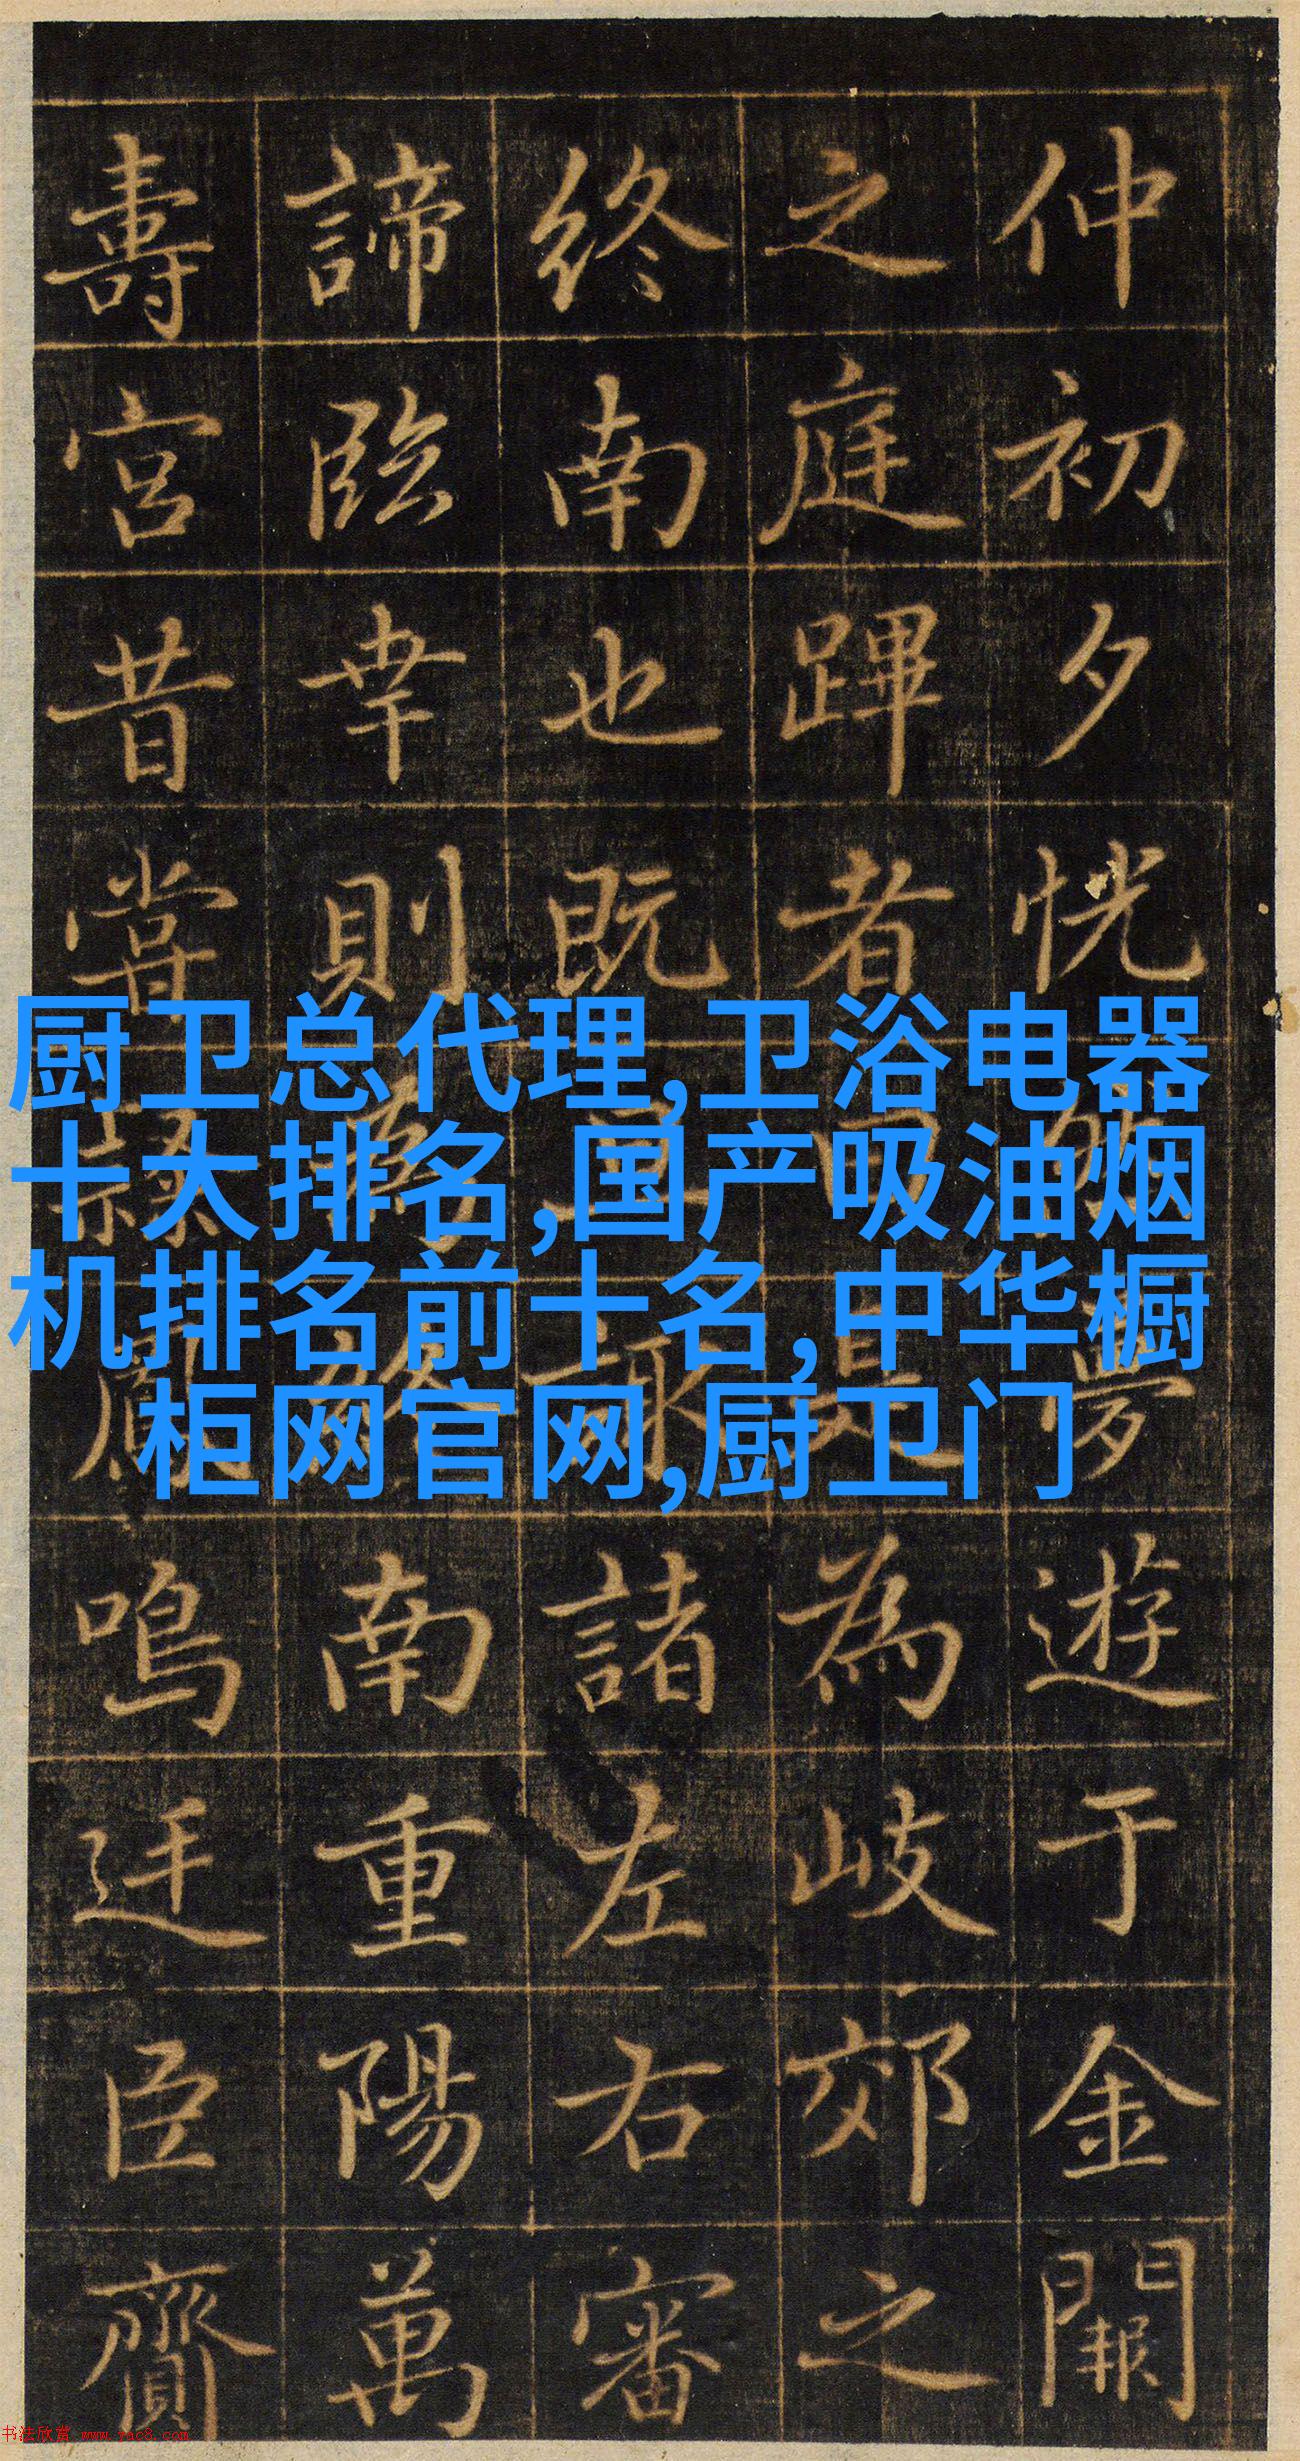 厨卫总代理,卫浴电器
十大排名,国产吸油烟
机排名前十名,中华橱
柜网官网,厨卫门
仲初夕恍夢遊于金闕
之庭蹕者曰是為岐郊之
終南也既諸左右審
諦臨幸則南重陽萬
壽宮昔嘗鳴廷臣齎
书法欣赏 www.yac8.com